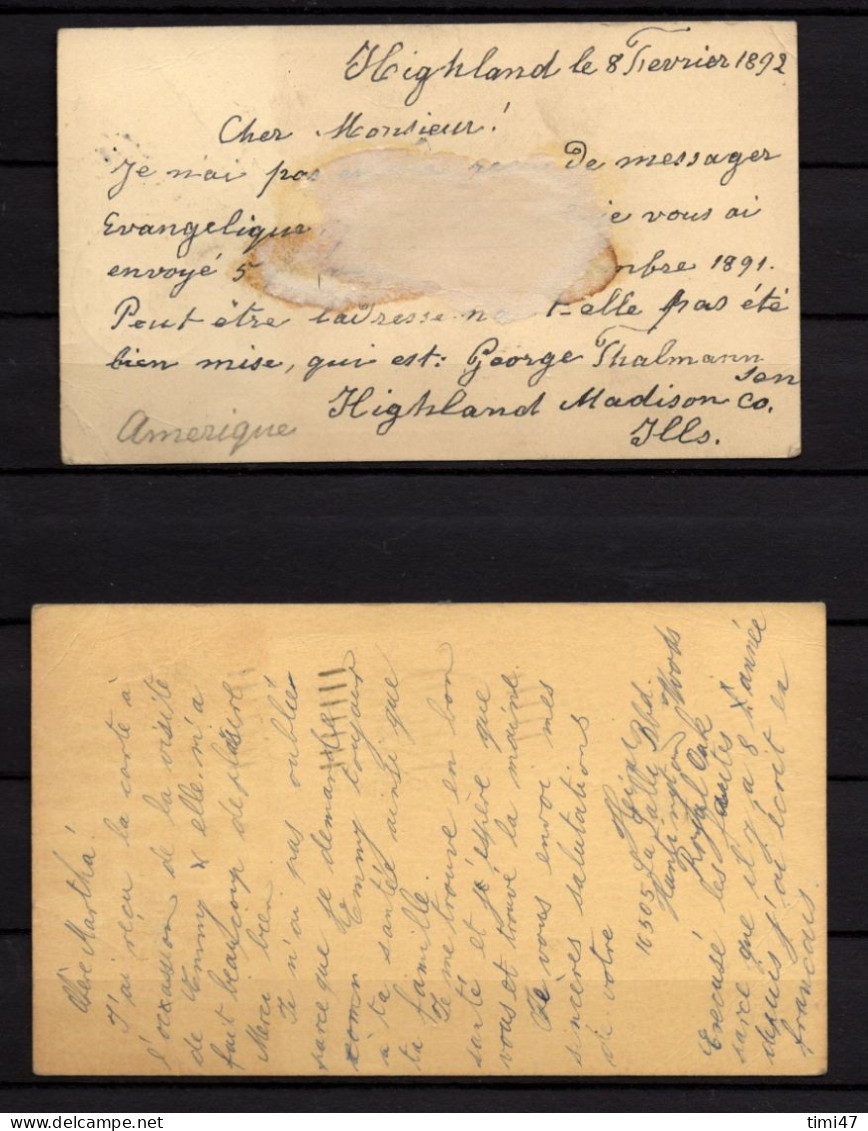 Highland le 8 Fevrier 1892
Cher Monsieur!
Je n'ai pas de messager
Evangelique je vous ai
envoyé 5 mbre 1891.
Peut être l'adresse n t-elle pas été
bien mise, qui est: George Thalmann
son
Highland Madison Co.
Ills.
Amerique
Chère Martha!
J'ai réçu la carte à
l'occassion de la visite
de Emmy x elle m'a
fait beaucoup de plaisire
Merci bien
Je n'ou pas oublier
parce que je demande
Emmy toujour
a ta santée ainsie que
ta famille.
Je me trouve en bon
santé et j'éspère que
vous et trouvé la mainie.
Je vous envoi mes
sincères salutations
de votre
Heini
10505 La Salle Bld.
Huntington Woods
Royal Oak
Excusé les fautes
parce que il y a 8 année
depuis j'ai ecrit en
francais.
timi47